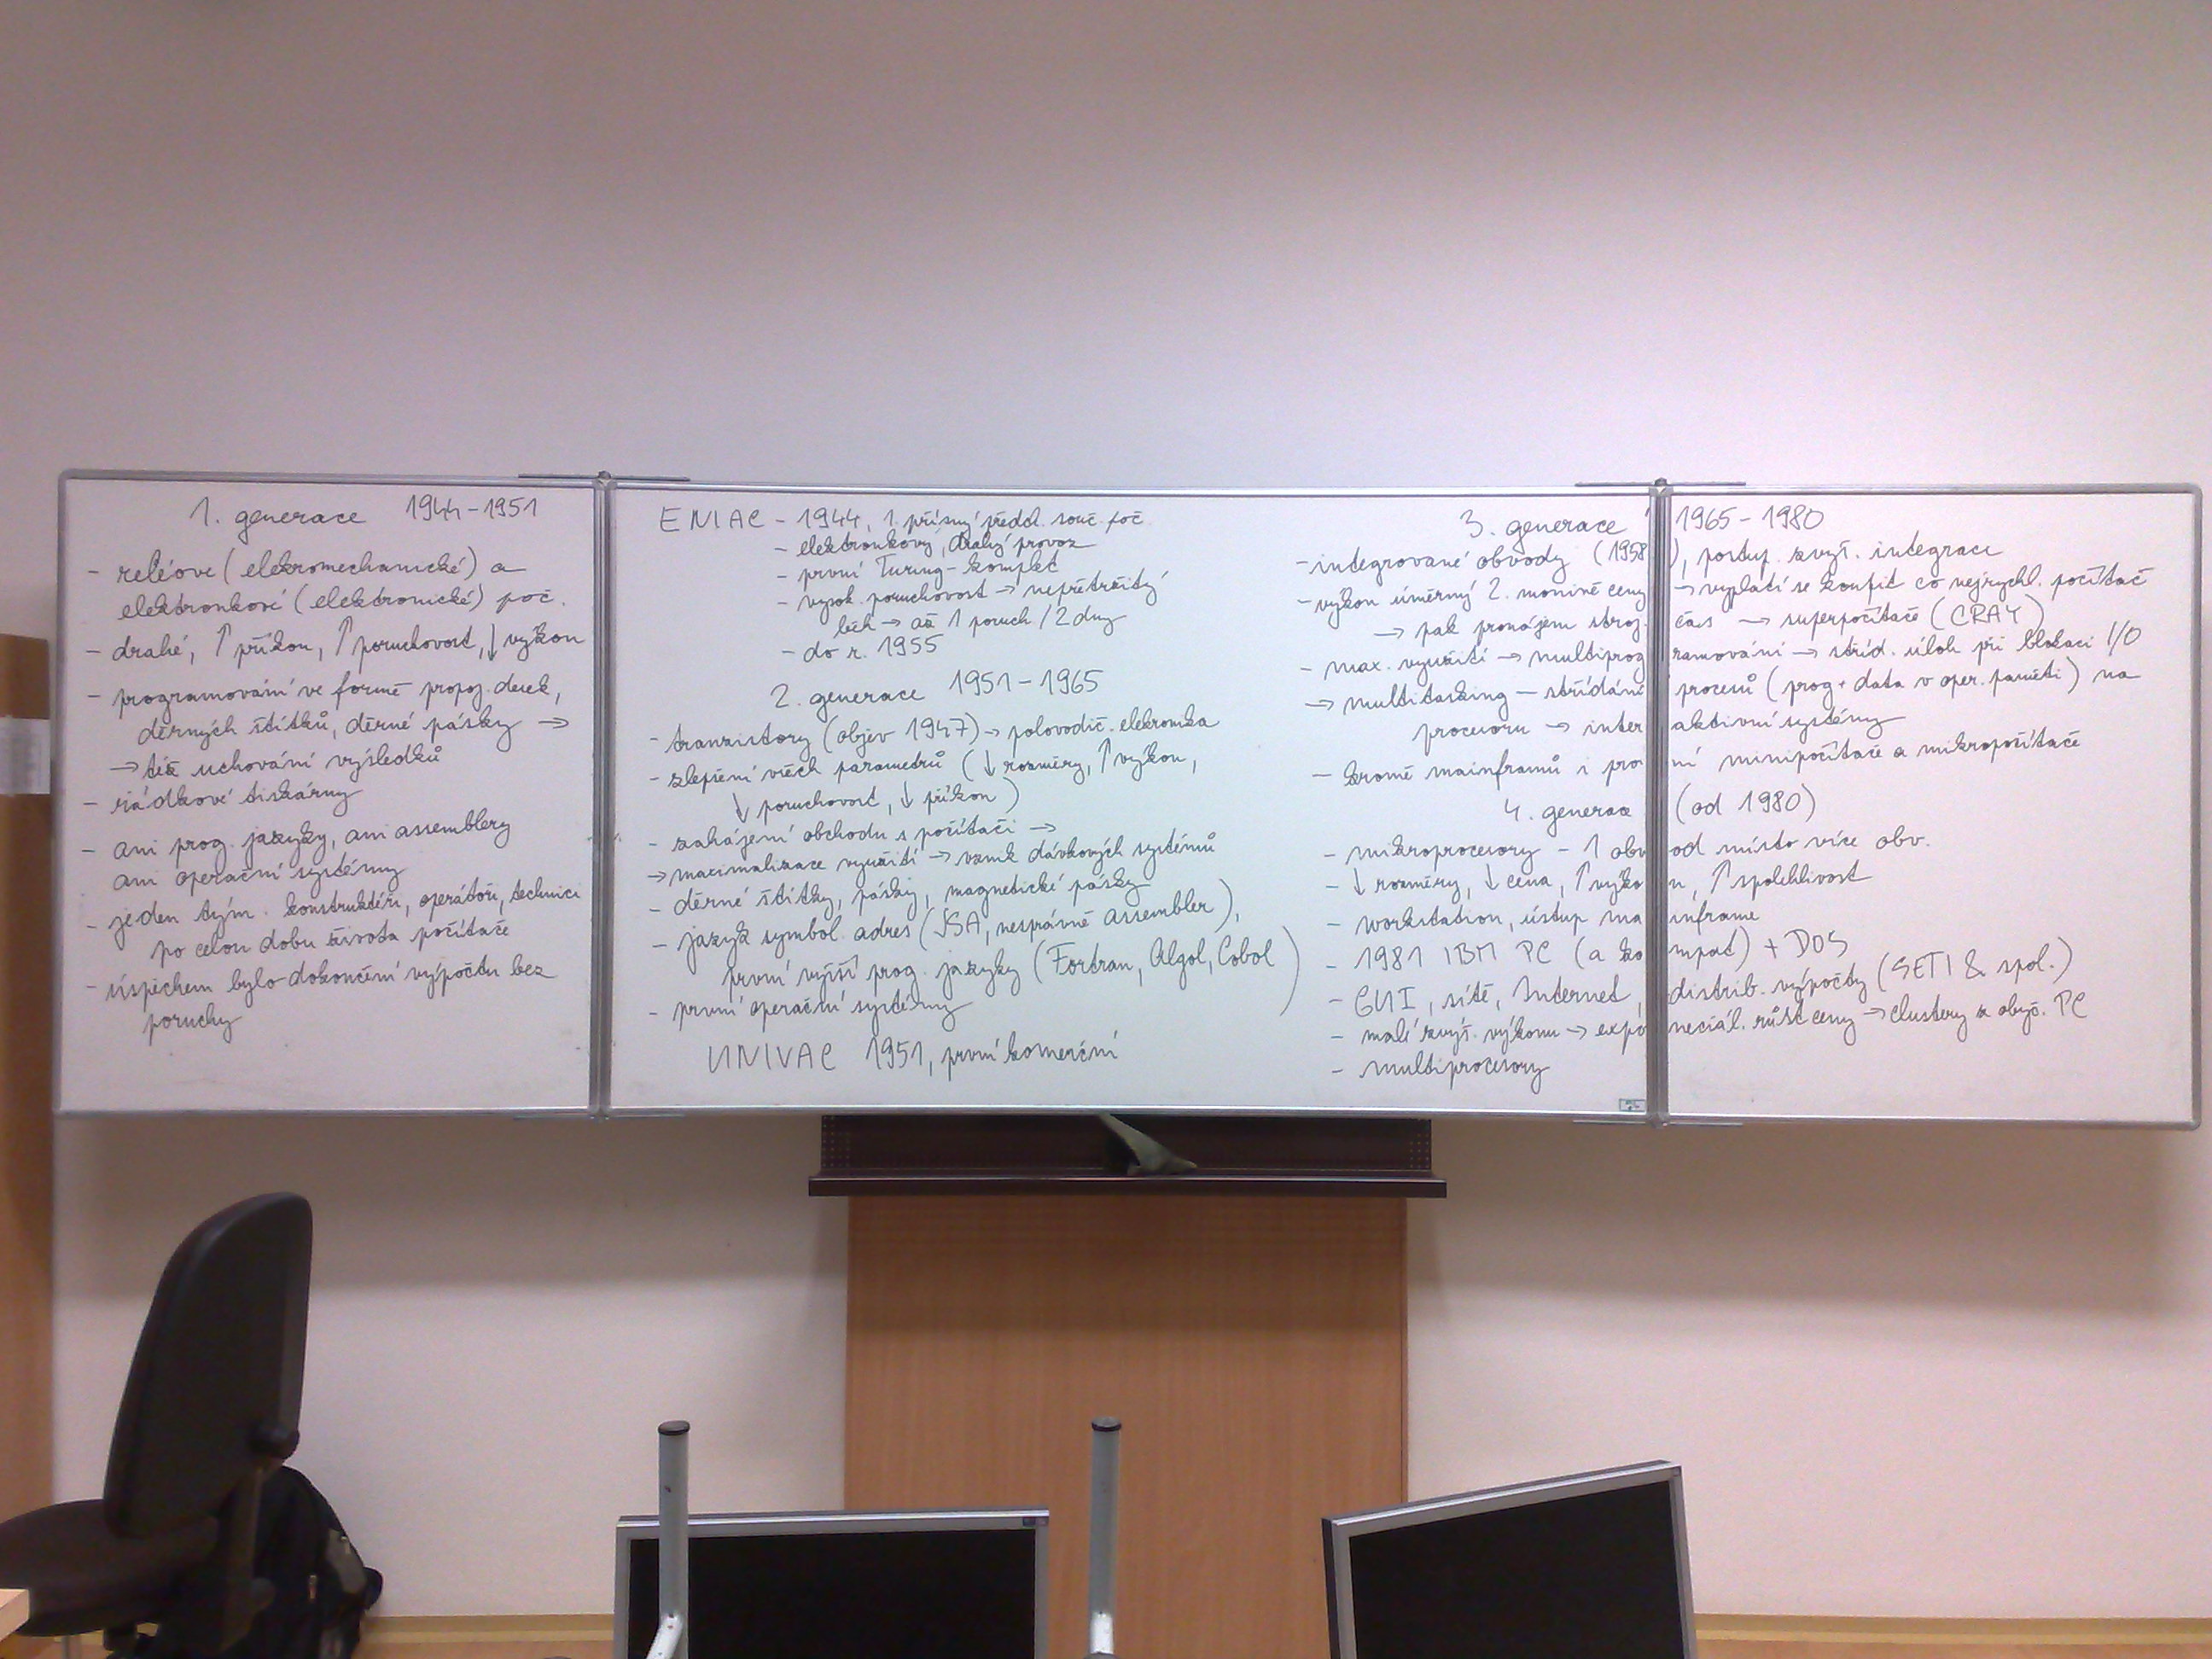 1. generace 1944-1951
- reléove (elekromechanické) a
elektronkové (elektronické) poč.
- drahé, ↑ příkon, ↑ poruchovost, ↓ výkon
- programování ve formě propoj. desek,
děrných štítků, děrné pásky →
→ též uchování výsledků
- řádkové tiskárny
- ani prog. jazyky, ani assemblery
ani operační systémy
- jeden tým. konstruktéři, operátoři, technici
po celou dobu života počítače
- úspěchem bylo dokončení výpočtu bez
poruchy
ENIAC - 1944, 1. přísný předch. souč. poč.
- elektronkový, drahý provoz
- první Turing-komplet
- vysok. poruchovost → nepřetržitý
běh → až 1 poruch / 2 dny
- do r. 1955
2. generace 1951-1965
- tranzistory (objev 1947) → polovodič. elekronika
- zlepšení všech parametrů (↓ rozměry, ↑ výkon,
↓ poruchovost, ↓ příkon)
- zahájení obchodu s počítači →
→ maximalizace využití → vznik dávkových systémů
- děrné štítky, pásky, magnetické pásky
- jazyk symbol. adres (JSA, nesprávně assembler),
první vyšší prog. jazyky (Fortran, Algol, Cobol)
- první operační systémy
UNIVAC 1951, první komerční
3. generace 1965-1980
- integrované obvody (1958), postup. zvyš. integrace
- výkon úměrný 2. mocnině ceny → vyplatí se koupit co nejrychl. počítač
→ pak pronájem stroj. čas → superpočítače (CRAY)
- max. využití → multiprogramování → stříd. úloh při blokaci I/O
→ multitasking - střídání procesů (prog + data v oper. paměti) na
procesoru → interaktivní systémy
- kromě mainframů i první minipočítače a mikropočítače
4. generace (od 1980)
- mikroprocesory - 1 obvod místo více obv.
- ↓ rozměry, ↓ cena, ↑ výkon, ↑ spolehlivost
- workstation, ústup mainframe
- 1981 IBM PC (a kompat) + DOS
- GUI, sítě, Internet, distrib. výpočty (SETI & spol.)
- malé zvyš. výkonu → exponeciál. růst ceny → clustery z obyč. PC
- multiprocesory